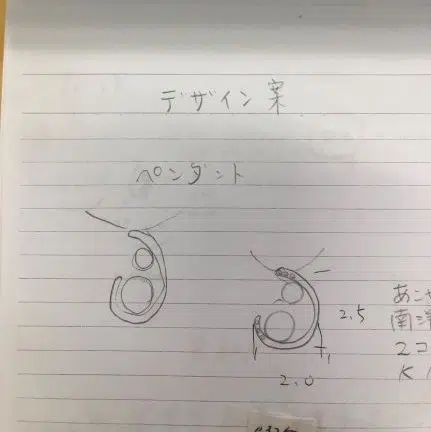 デザイン案
ペンダント
2.5
2.0
あこ
南洋
2コ
K